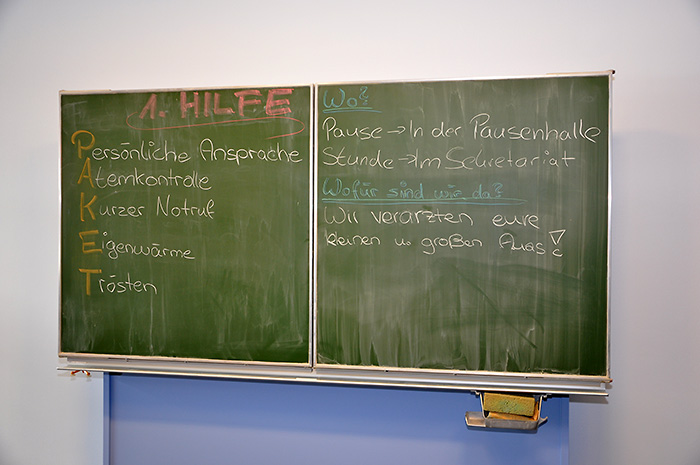 1. HILFE
Persönliche Ansprache
Atemkontrolle
Kurzer Notruf
Eigenwärme
Trösten
Wo?
Pause → In der Pausenhalle
Stunde → Im Sekretariat
Wofür sind wir da?
Wir verarzten eure
kleinen u. großen Auas!